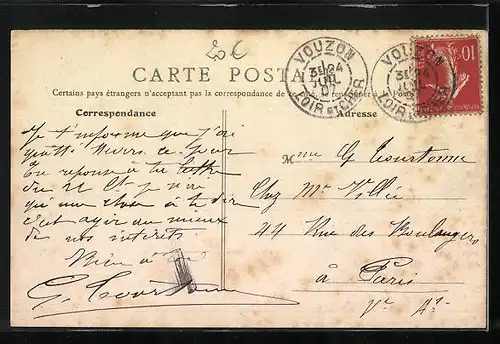 20 €
CARTE POSTALE
Certains pays étrangers n'acceptent pas la correspondance de ce côté, se renseigner à la Poste
Correspondance
Adresse
VOUZON
3E 24
JUIL
07
LOIR ET CHER
VOUZON
3E 24
07
LOIR ET CHER
10
Je t'informe que j'ai
quitté ce jour
En réponse à ta lettre
du 22 Ct je n'ai
qu'une chose à te dire
c'est agir au mieux
de nos intérêts.
Bien à Toi
G. Courtonne
Mme G Courtonne
Chez Mr Villée
44 Rue des Boulangers
à Paris
Ve Ar